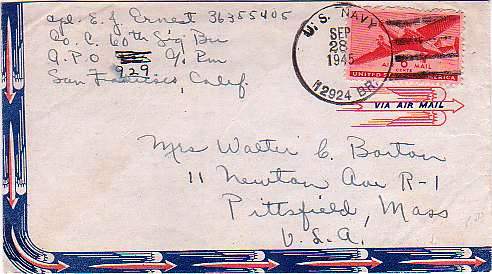 Cpl. E. J Ernest 36355405
Co. C. 60th Sig Bn
A.P.O c/o P.m
929
San Francisco, Calif.
U.S. NAVY
SEP
28
1945
12924 BR.
AIR 6 MAIL
CENTS
UNITED STATES OF AMERICA
VIA AIR MAIL
Mrs Walter C. Barton
11 Newton Ave R-1
Pittsfield, Mass
U.S.A.